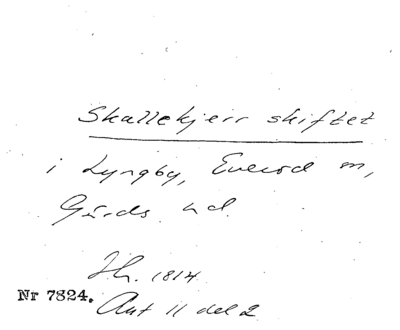 Skallekjerr skiftet
i Lyngby, Everöd m,
Gärds hd.
Jh. 1814
Nr 7824. Ant 11 del 2